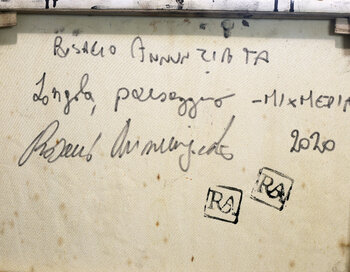 ROSARIO ANNUNZIATA
Longola, paesaggio - MIXMEDIA
Rosario Annunziata 2020
RA RA